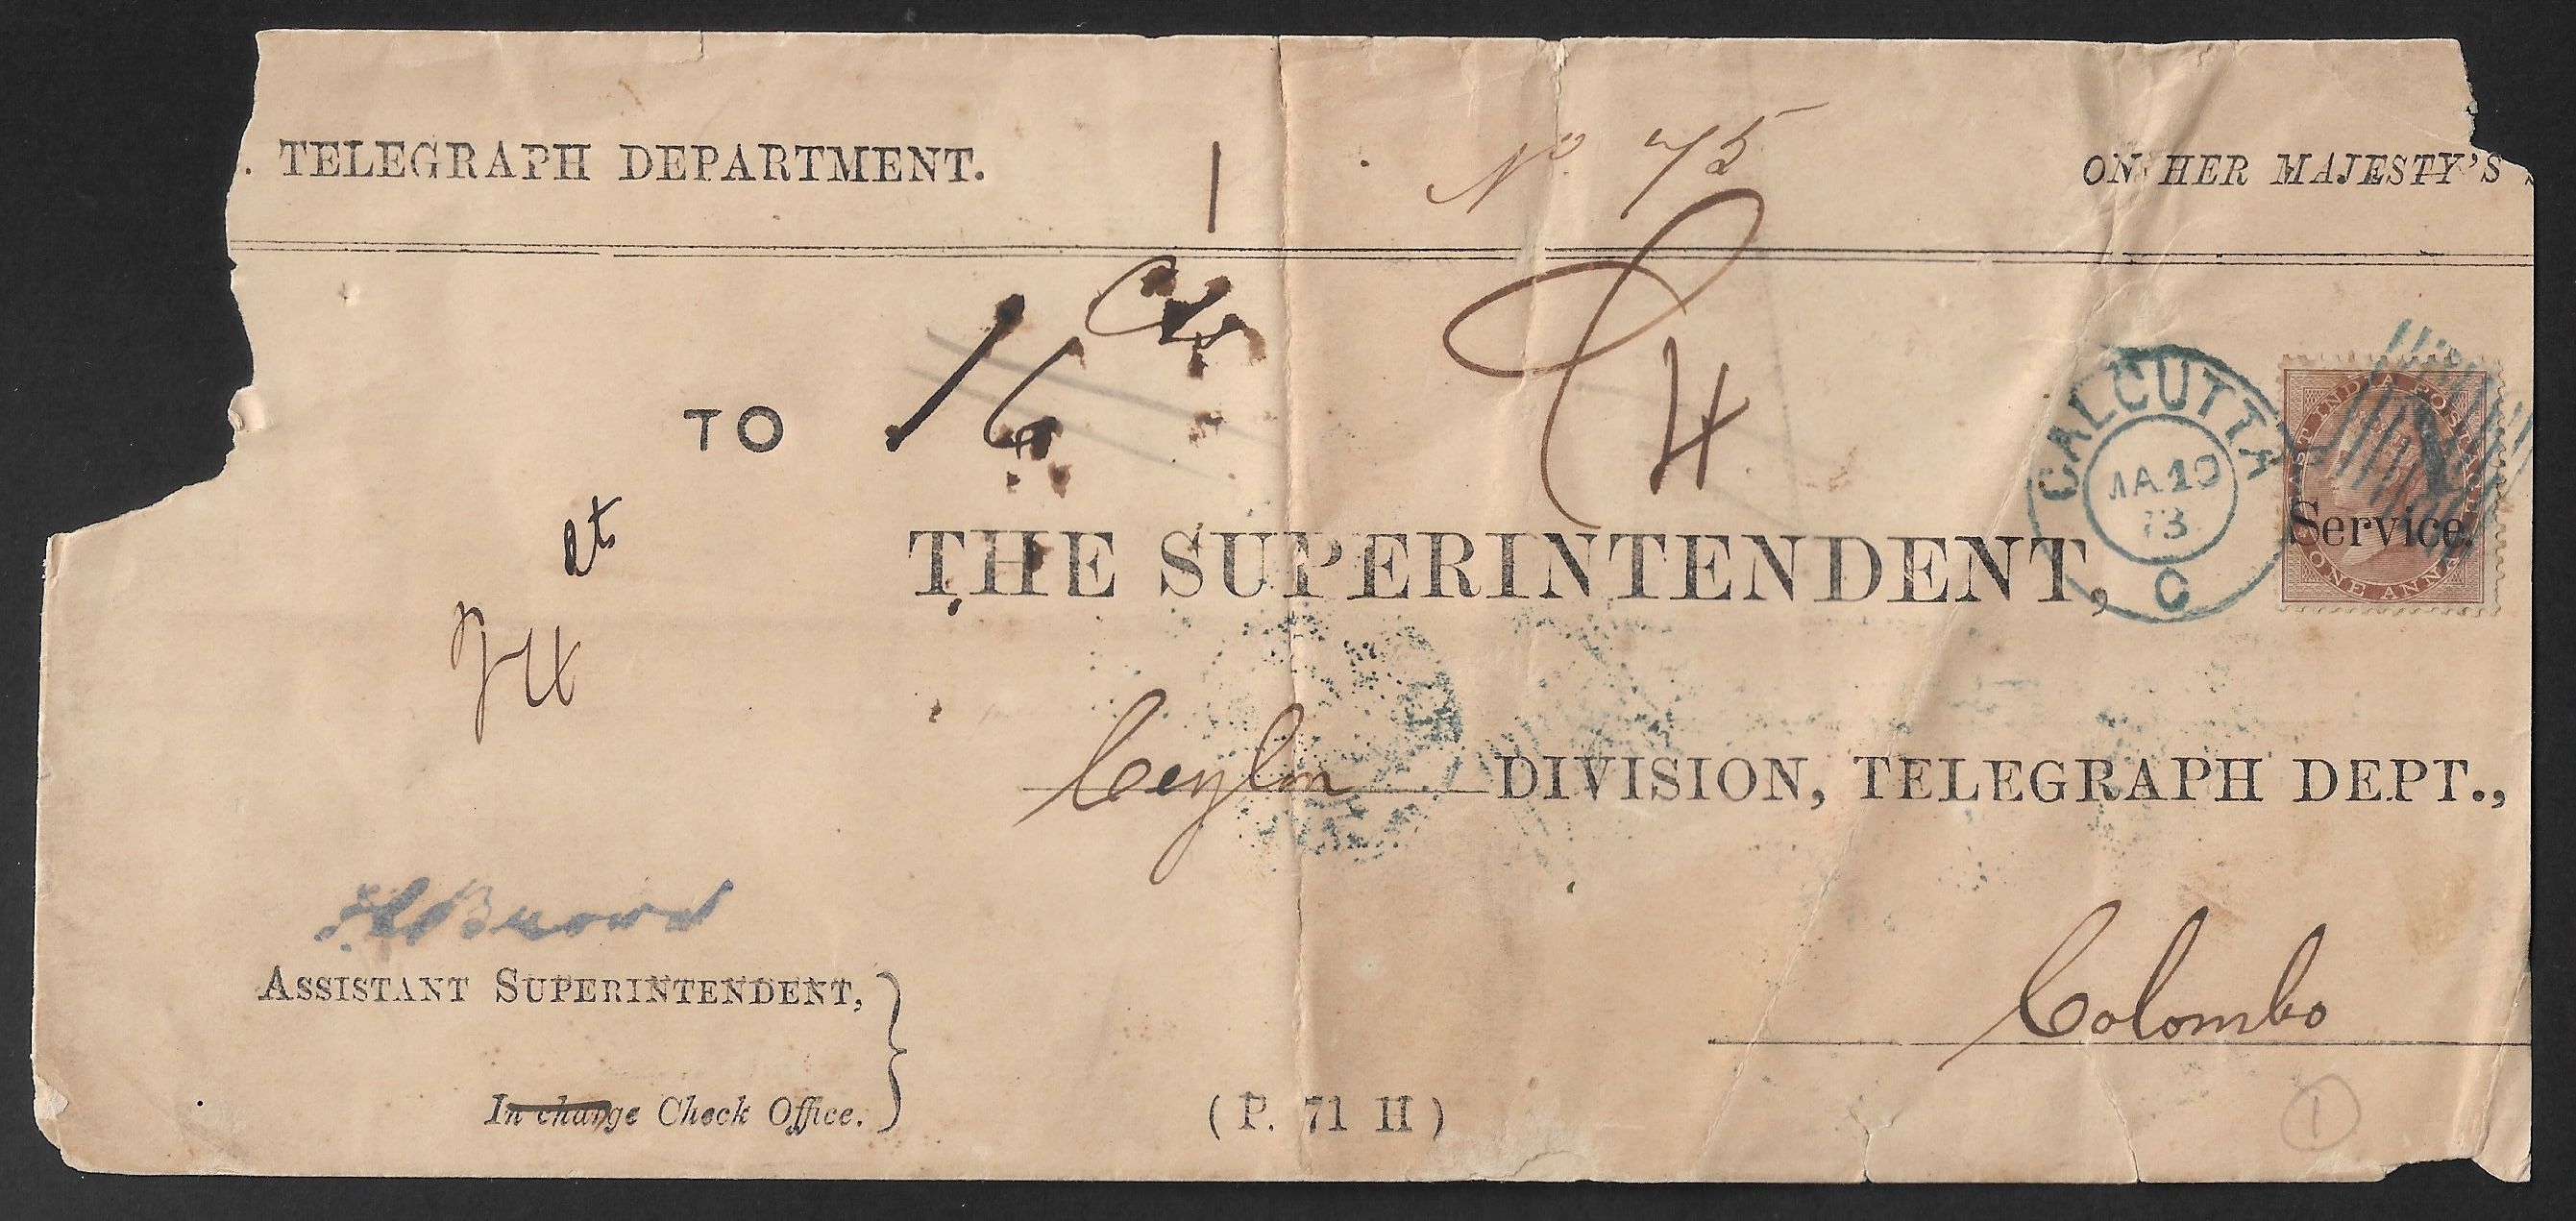 . TELEGRAPH DEPARTMENT.
1
No 75
ON HER MAJESTY'S
TO
THE SUPERINTENDENT,
CALCUTTA
73
C
EAST INDIA POSTAGE
Service.
ONE ANNA
Ceylon DIVISION, TELEGRAPH DEPT.,
Colombo
ASSISTANT SUPERINTENDENT,
In charge Check Office.
(P. 71 H)
1